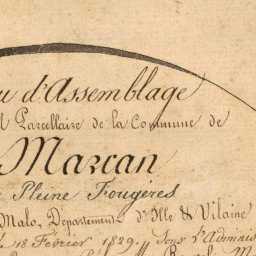 u d'Assemblage
l Parcellaire de la Commune de
Marcan
Pleine Fougères
Malo, Département d'Ille & Vilaine
18 Fevrier 1829. Sous l'Adminis